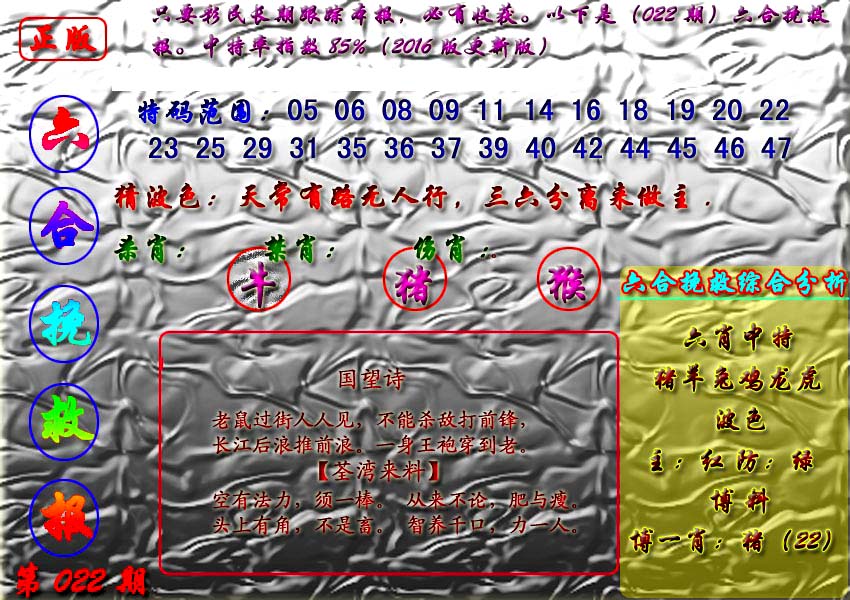 正版
只要彩民长期跟踪本报，必有收获。以下是（022期）六合挽救
报。中特率指数85%（2016版更新版）
六合挽救报
第022期
特码范围：05 06 08 09 11 14 16 18 19 20 22
23 25 29 31 35 36 37 39 40 42 44 45 46 47
猜波色：天常有路无人行，三六分离来做主.
杀肖： 禁肖： 伤肖：
牛 猪 猴
国望诗
老鼠过街人人见，不能杀敌打前锋，
长江后浪推前浪。一身王袍穿到老。
【荃湾来料】
空有法力，须一棒。 从来不论，肥与瘦。
头上有角，不是畜。 智养千口，力一人。
六合挽救综合分析
六肖中特
猪羊兔鸡龙虎
波色
主：红防：绿
博料
博一肖：猪（22）